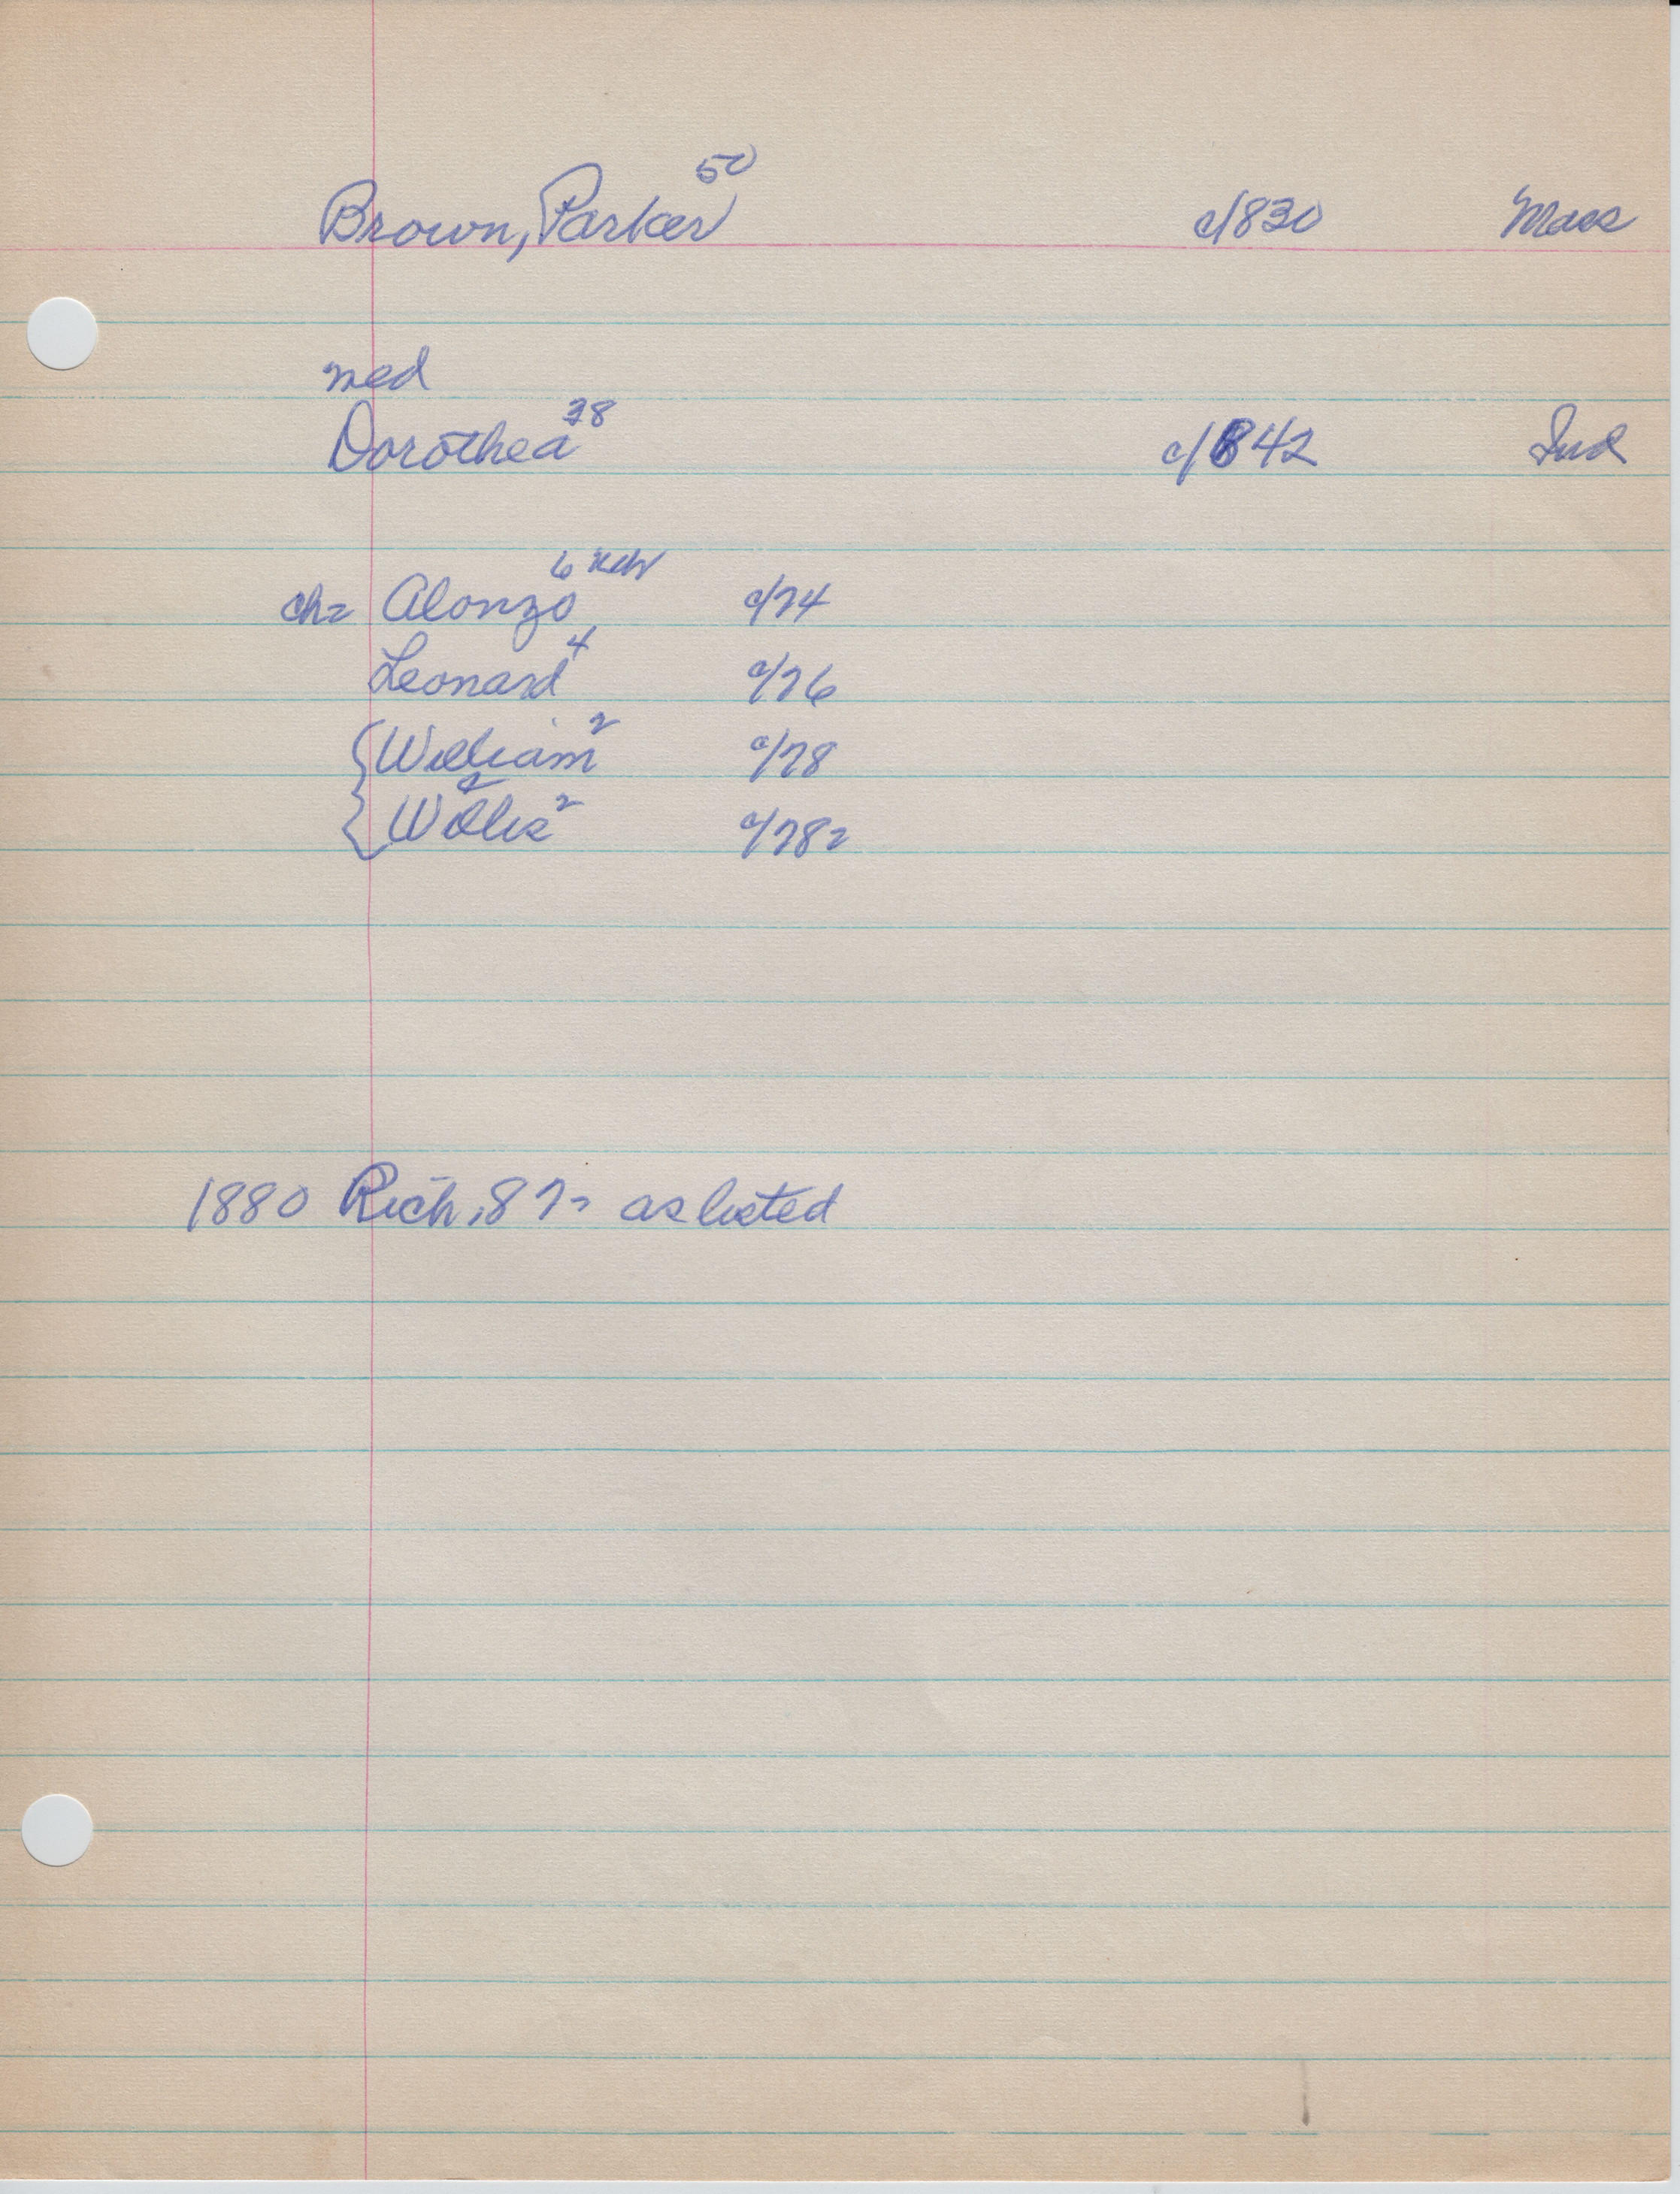 Brown, Parker 50 c/830 Mass
med
Dorothea 38 c/842 Ind
ch= Alonzo 6 c/74
Leonard 4 c/76
{William 2 c/78
{Willis 2 c/78=
1880 Rich, 87= as listed